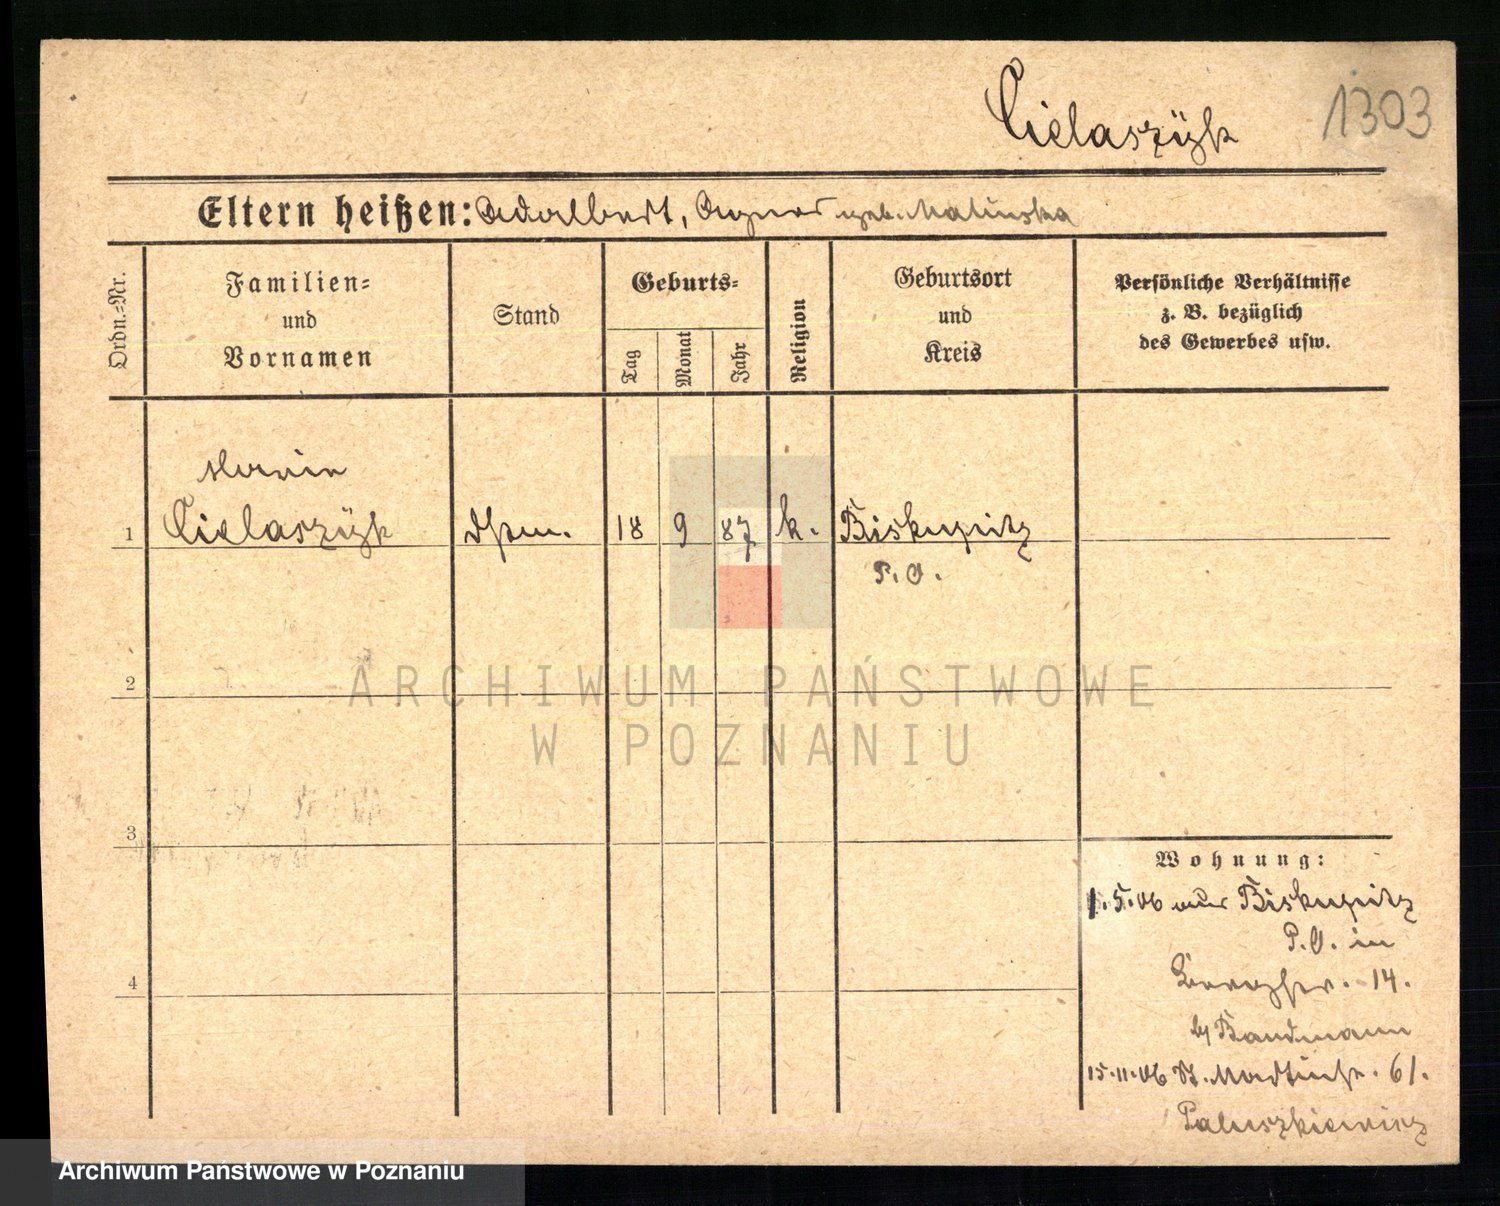 Cielaszÿk
1303
Eltern heißen: Adalbert, Agnes geb. Malinska
Ordn.-Nr.
Familien-
und
Vornamen
Stand
Geburts-
Tag
Monat
Jahr
Religion
Geburtsort
und
Kreis
Persönliche Verhältnisse
z. B. bezüglich
des Gewerbes usw.
Marie
1 Cielaszÿk 18 9 87 k. Biskupitz
P. O.
2
ARCHIWUM PAŃSTWOWE
W POZNANIU
3
4
Wohnung:
1.5.06 aus Biskupitz
P.O. in
14.
b/ Bandmann
15.11.06 St. Martinstr. 61.
Paluszkiewicz
Archiwum Państwowe w Poznaniu